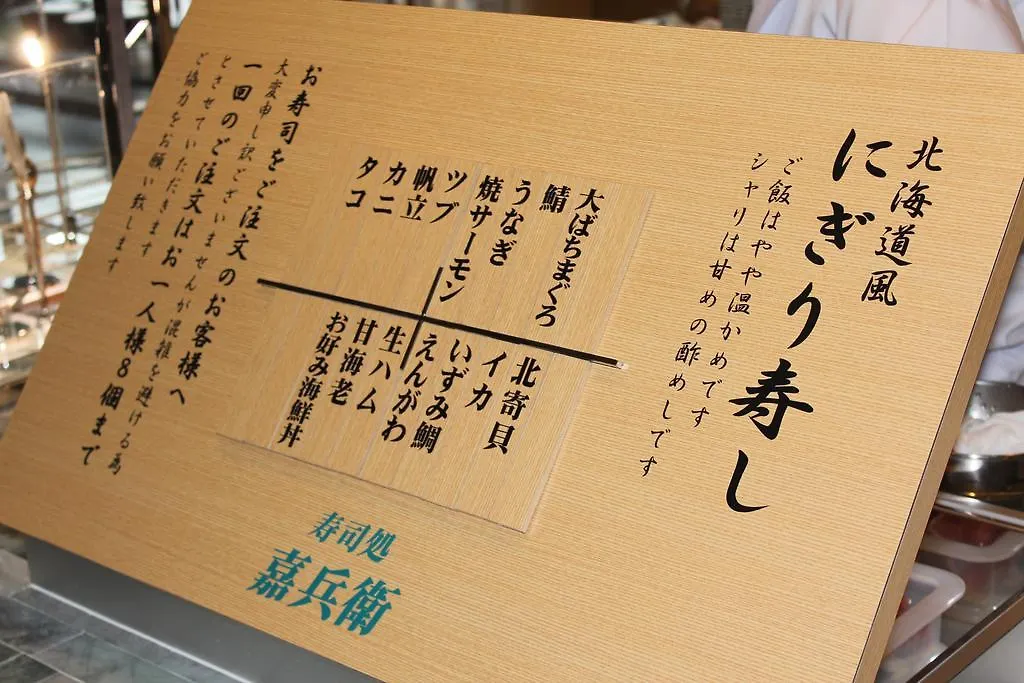 北海道風
にぎり寿し
ご飯はやや温かめです
シャリは甘めの酢めしです
大ばちまぐろ
鯖
うなぎ
焼サーモン
ツブ
帆立
カニ
タコ
北寄貝
イカ
いずみ鯛
えんがわ
生ハム
甘海老
お好み海鮮丼
お寿司をご注文のお客様へ
大変申し訳ございませんが混雑を避ける為
一回のご注文はお一人様8個まで
とさせていただきます
ご協力をお願い致します
寿司処
嘉兵衛